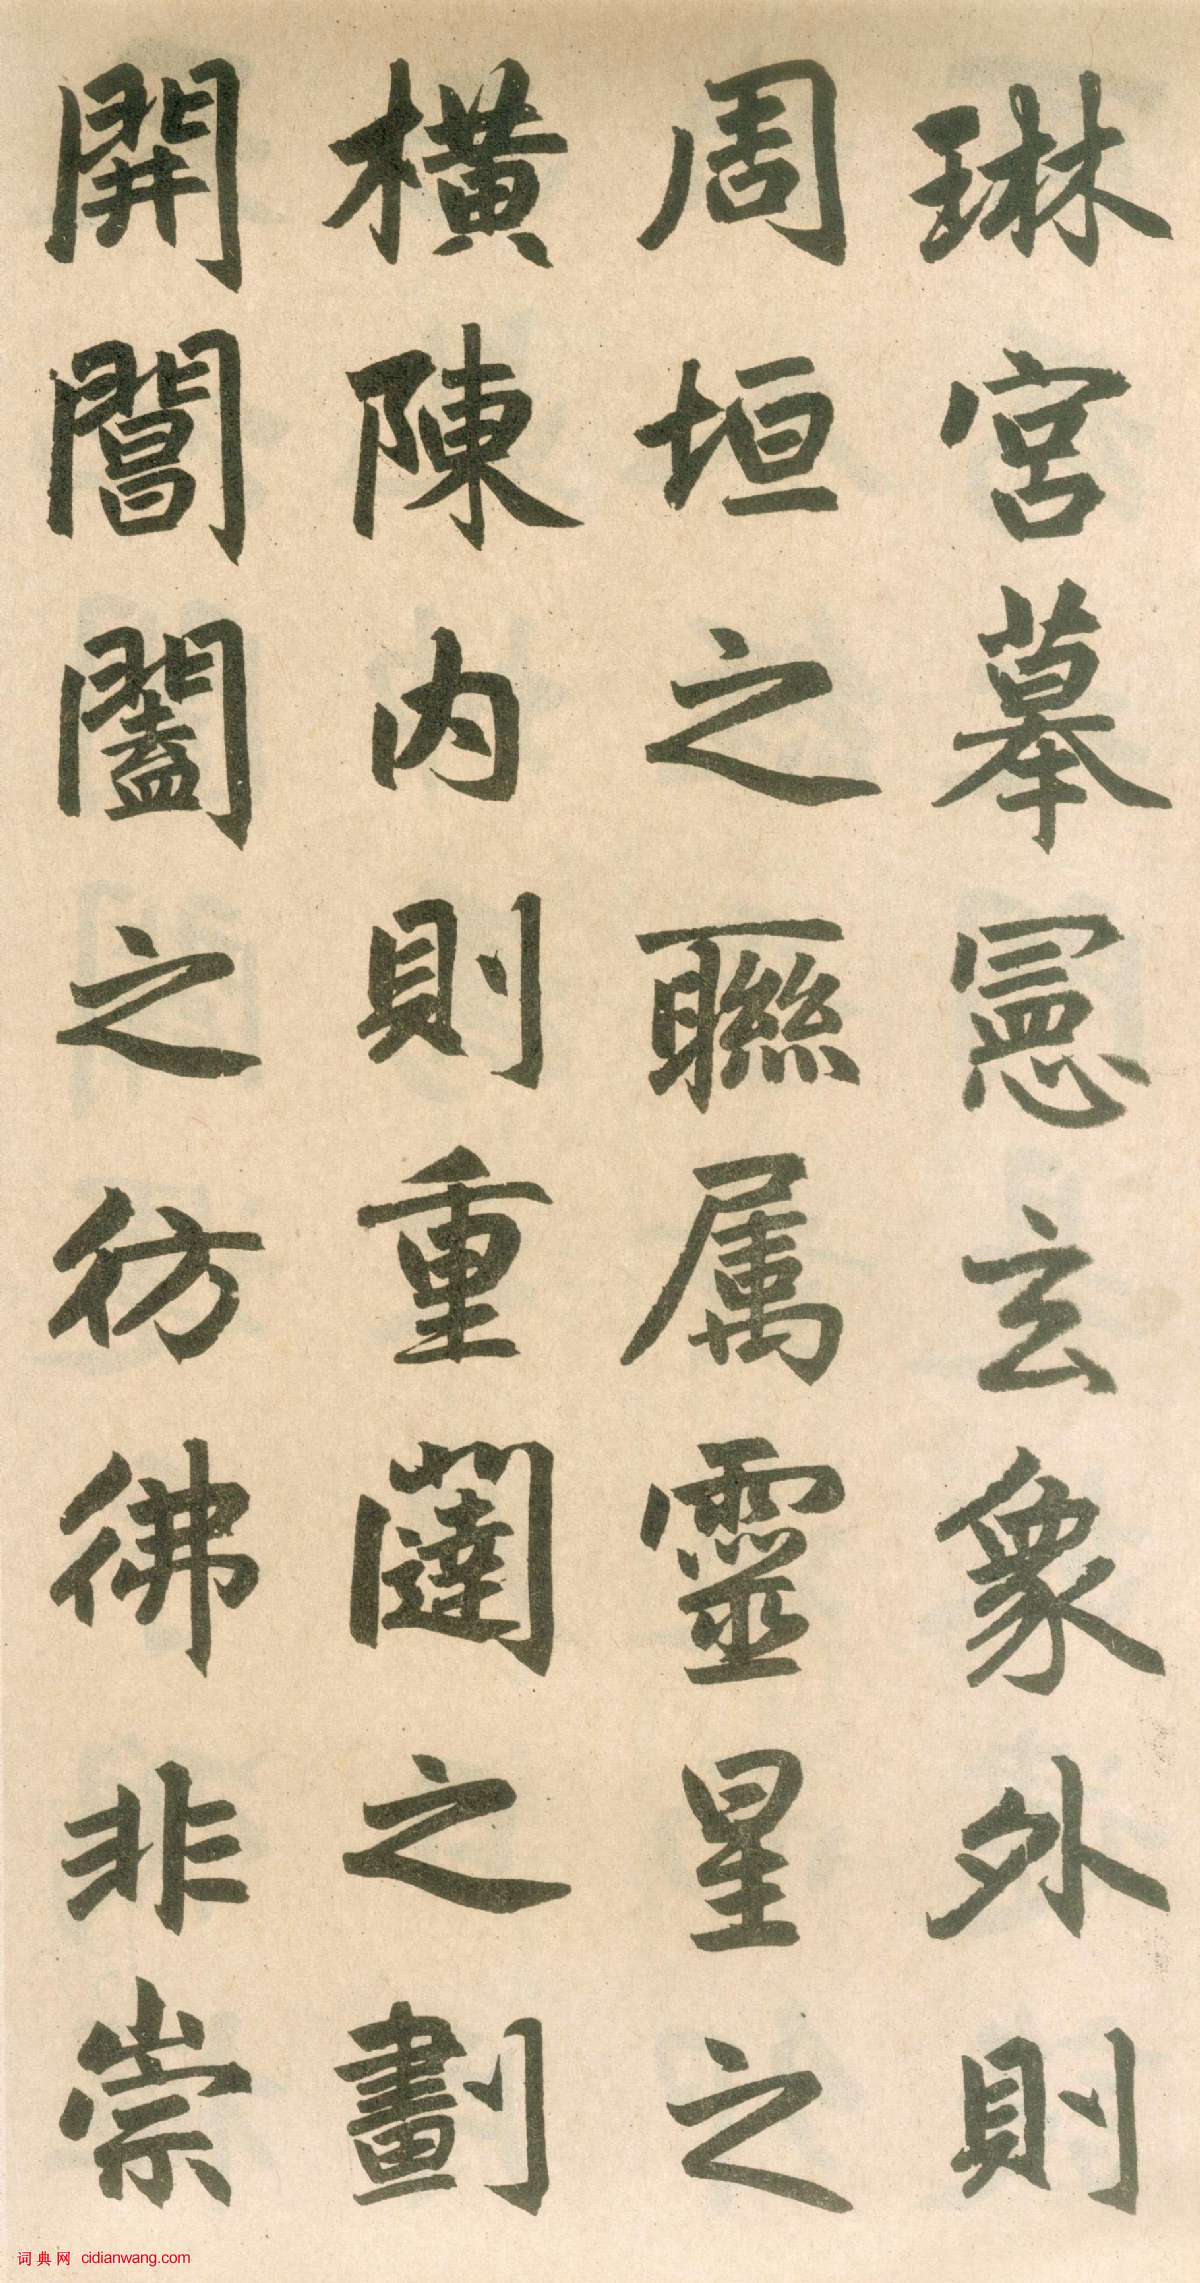 琳宮摹憲玄象外則
周垣之聯属靈星之
橫陳内則重闥之劃
開闓闔之彷彿非崇
词典网 cidianwang.com